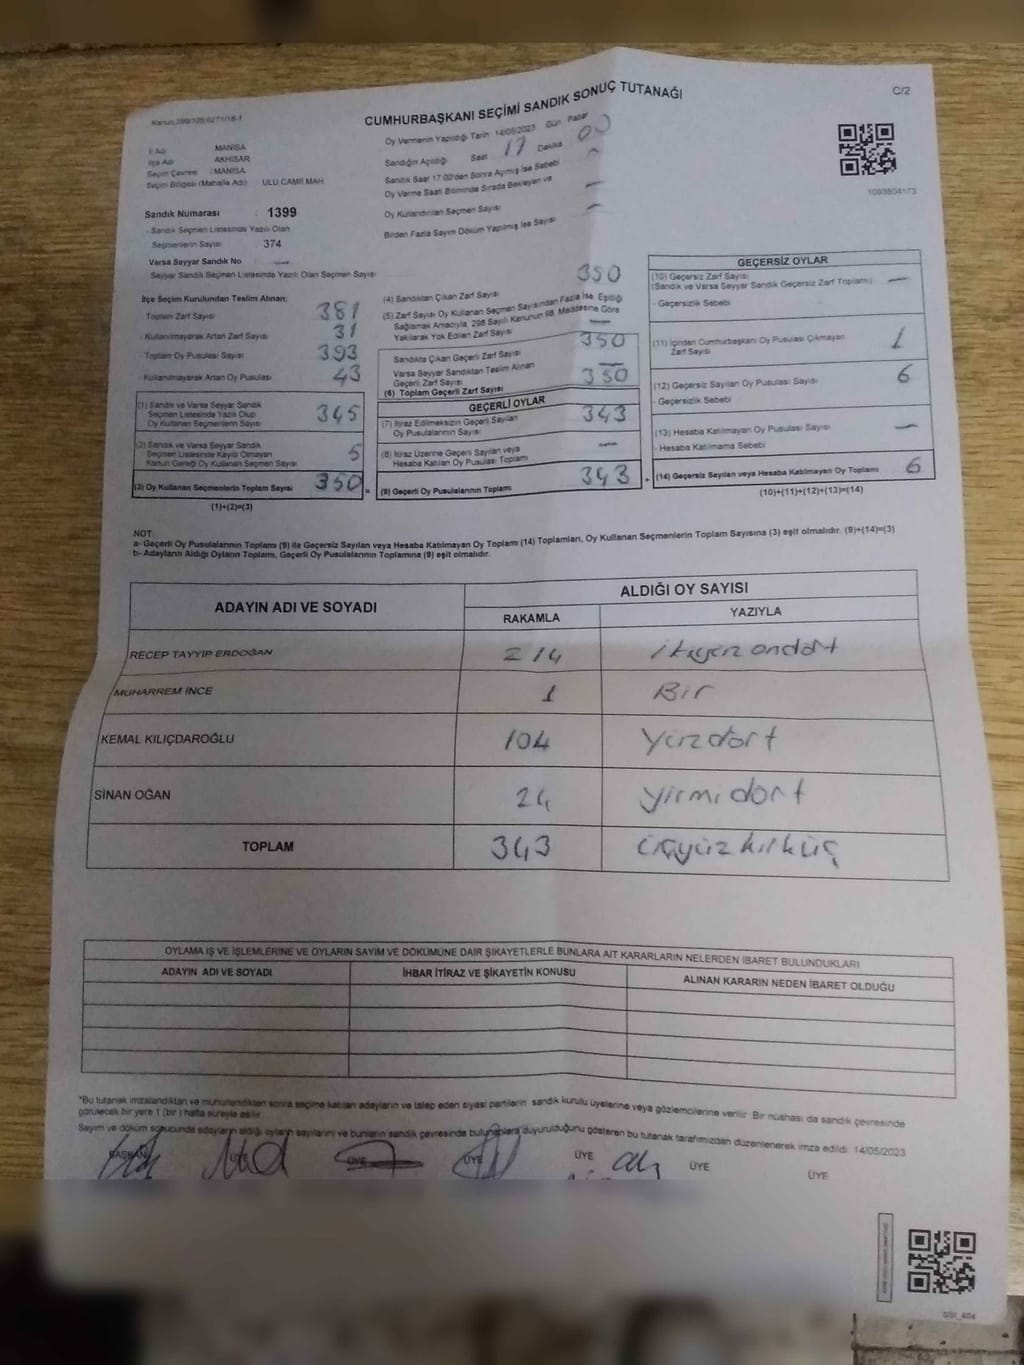 CUMHURBAŞKANI SEÇİMİ SANDIK SONUÇ TUTANAĞI
C/2
Oy Vermenin Yapıldığı Tarih 14/05/2023 Gün Pazar
İl Adı MANİSA
İlçe Adı AKHİSAR
Seçim Çevresi : MANİSA
Seçim Bölgesi (Mahalle Adı) ULU CAMİİ MAH
Sandığın Açıldığı Saat 17 Dakika 00
Sandık Saat 17.00'den Sonra Açılmış İse Sebebi
Oy Verme Saati Bitiminde Sırada Bekleyen ve
Oy Kullandırılan Seçmen Sayısı
Birden Fazla Sayım Döküm Yapılmış İse Sayısı
1093804173
Sandık Numarası : 1399
- Sandık Seçmen Listesinde Yazılı Olan
Seçmenlerin Sayısı : 374
Varsa Seyyar Sandık No
Seyyar Sandık Seçmen Listesinde Yazılı Olan Seçmen Sayısı
İlçe Seçim Kurulundan Teslim Alınan;
Toplam Zarf Sayısı 381
Kullanılmayarak Artan Zarf Sayısı 31
Toplam Oy Pusulası Sayısı 393
Kullanılmayarak Artan Oy Pusulası 43
(1) Sandık ve Varsa Seyyar Sandık
Seçmen Listesinde Yazılı Olup
Oy Kullanan Seçmenlerin Sayısı 345
(2) Sandık ve Varsa Seyyar Sandık
Seçmen Listesinde Kayıtlı Olmayan
Kanun Gereği Oy Kullanan Seçmen Sayısı 5
(3) Oy Kullanan Seçmenlerin Toplam Sayısı 350
(1)+(2)=(3)
(4) Sandıktan Çıkan Zarf Sayısı 350
(5) Zarf Sayısı Oy Kullanan Seçmen Sayısından Fazla İse, Eşitliği
Sağlamak Amacıyla, 298 Sayılı Kanunun 98. Maddesine Göre
Yakılarak Yok Edilen Zarf Sayısı —
Sandıkta Çıkan Geçerli Zarf Sayısı 350
Varsa Seyyar Sandıktan Teslim Alınan
Geçerli Zarf Sayısı —
(6) Toplam Geçerli Zarf Sayısı 350
GEÇERLİ OYLAR
(7) İtiraz Edilmeksizin Geçerli Sayılan
Oy Pusulalarının Sayısı 343
(8) İtiraz Üzerine Geçerli Sayılan veya
Hesaba Katılan Oy Pusulası Toplamı —
= (9) Geçerli Oy Pusulalarının Toplamı 343
GEÇERSİZ OYLAR
(10) Geçersiz Zarf Sayısı
(Sandık ve Varsa Seyyar Sandık Geçersiz Zarf Toplamı) —
- Geçersizlik Sebebi
(11) İçinden Cumhurbaşkanı Oy Pusulası Çıkmayan
Zarf Sayısı 1
(12) Geçersiz Sayılan Oy Pusulası Sayısı 6
- Geçersizlik Sebebi
(13) Hesaba Katılmayan Oy Pusulası Sayısı —
- Hesaba Katılmama Sebebi
+ (14) Geçersiz Sayılan veya Hesaba Katılmayan Oy Toplamı 6
(10)+(11)+(12)+(13)=(14)
NOT:
a- Geçerli Oy Pusulalarının Toplamı (9) ile Geçersiz Sayılan veya Hesaba Katılmayan Oy Toplamı (14) Toplamları, Oy Kullanan Seçmenlerin Toplam Sayısına (3) eşit olmalıdır. (9)+(14)=(3)
b- Adayların Aldığı Oyların Toplamı, Geçerli Oy Pusulalarının Toplamına (9) eşit olmalıdır.
ADAYIN ADI VE SOYADI
ALDIĞI OY SAYISI
RAKAMLA YAZIYLA
RECEP TAYYİP ERDOĞAN 214 ikiyüz ondört
MUHARREM İNCE 1 Bir
KEMAL KILIÇDAROĞLU 104 Yüzdört
SİNAN OĞAN 24 yirmidört
TOPLAM 343 üçyüzkırküç
OYLAMA İŞ VE İŞLEMLERİNE VE OYLARIN SAYIM VE DÖKÜMÜNE DAİR ŞİKAYETLERLE BUNLARA AİT KARARLARIN NELERDEN İBARET BULUNDUKLARI
ADAYIN ADI VE SOYADI İHBAR İTİRAZ VE ŞİKAYETİN KONUSU ALINAN KARARIN NEDEN İBARET OLDUĞU
*Bu tutanak imzalandıktan ve mühürlendikten sonra seçime katılan adayların ve talep eden siyasi partilerin sandık kurulu üyelerine veya gözlemcilerine verilir. Bir nüshası da sandık çevresinde
görülecek bir yere 1 (bir) hafta süreyle asılır.
Sayım ve döküm sonucunda adayların aldığı oyların sayılarını ve bunların sandık çevresinde bulunanlara duyurulduğunu gösteren bu tutanak tarafımızdan düzenlenerek imza edildi. 14/05/2023
BAŞKAN ÜYE ÜYE ÜYE ÜYE ÜYE ÜYE